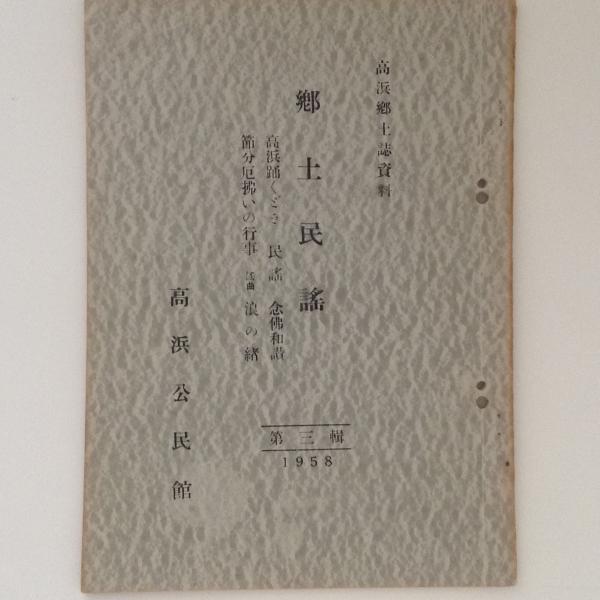 高浜鄕土誌資料
鄕土民謠
高浜踊くどき 民謠 念佛和讃
節分厄拂いの行事 謠曲 浪の緒
第三輯
1958
高浜公民館